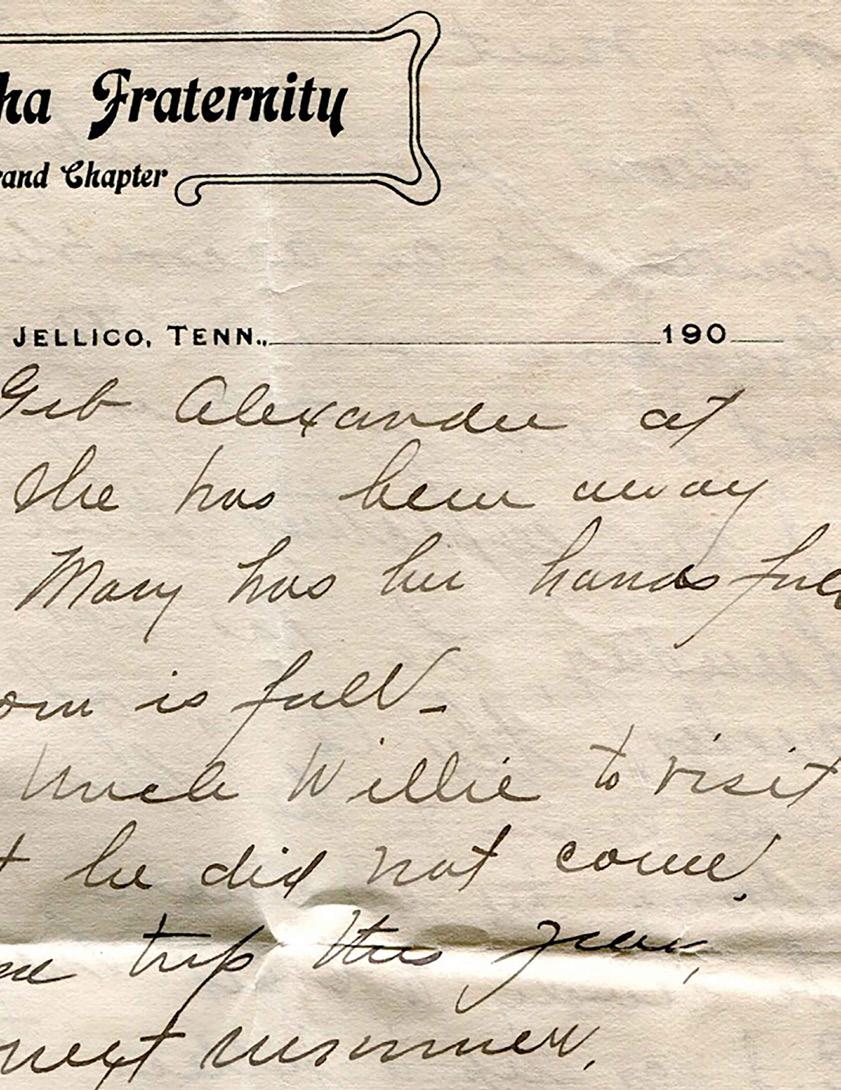 ha Fraternity
rand Chapter
JELLICO, TENN., 190
Alexander at
She has been away
Mary has her hands full
om is full-
Uncle Willie to visit
t he did not come.
trip this year,
next summer.